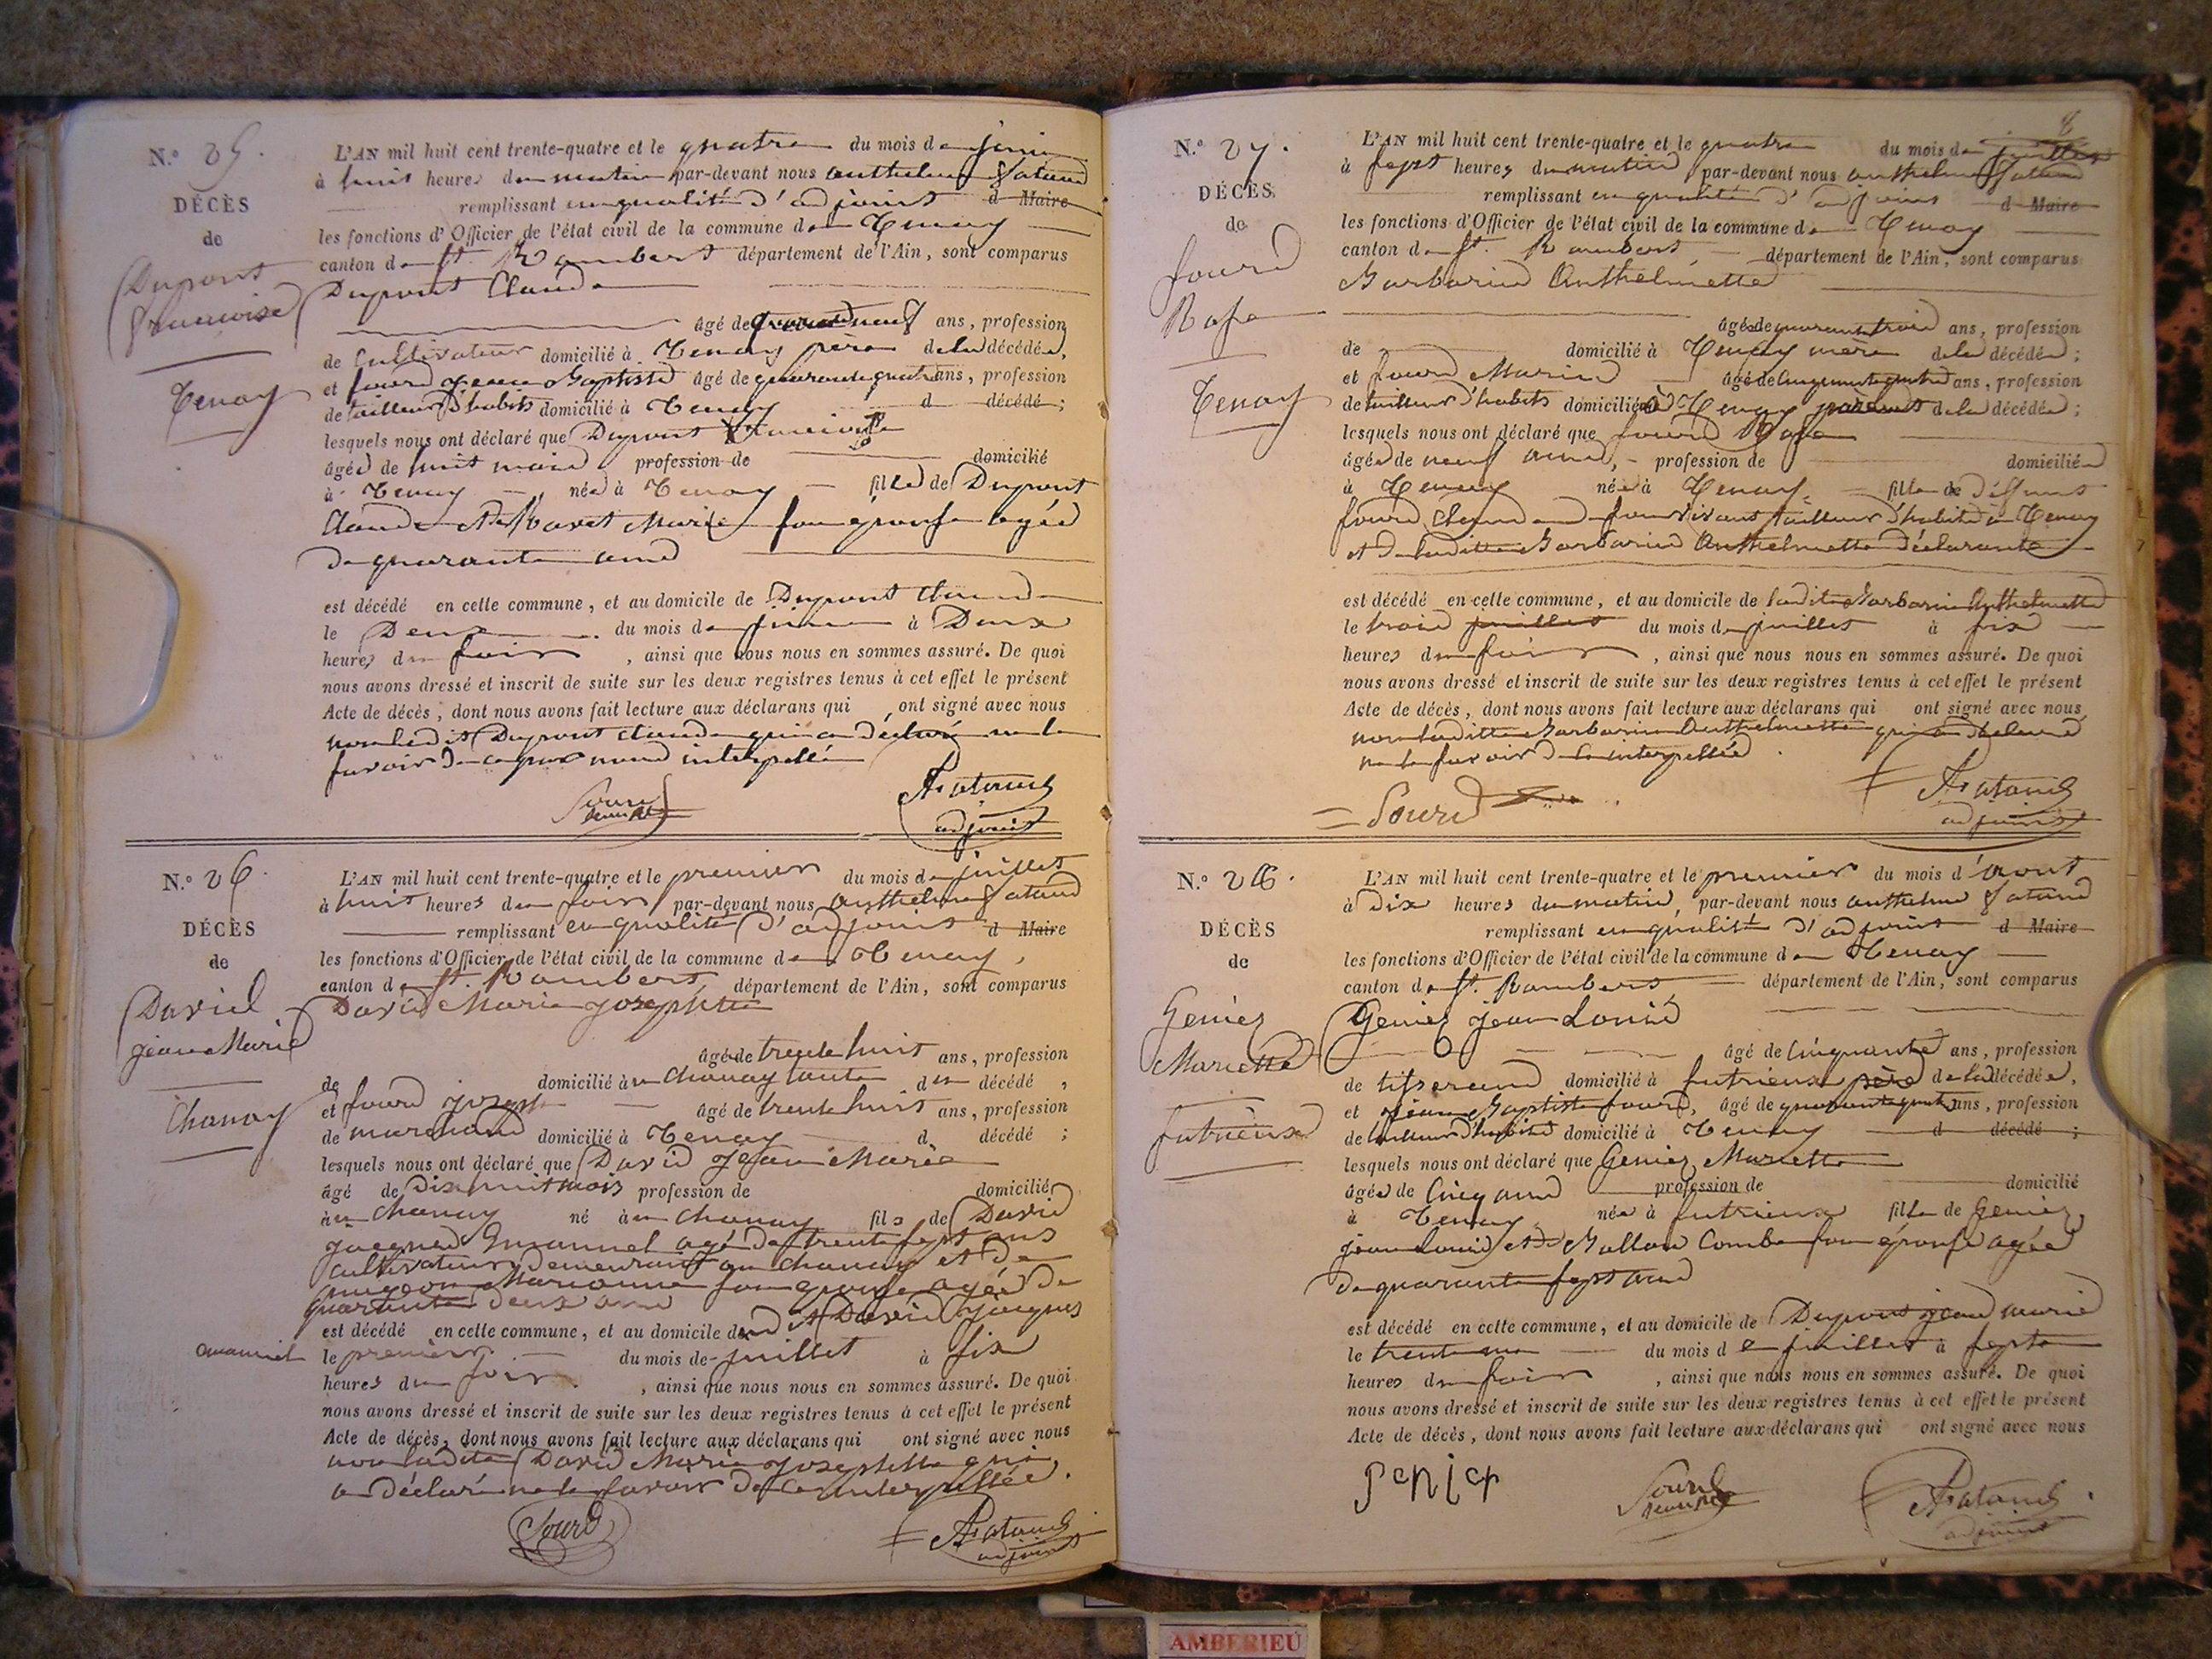 N.º 25.
DÉCÈS
de
Dupont
françoise
Tenay
L'AN mil huit cent trente-quatre et le quatre du mois de juin
à huit heures du matin par-devant nous anthelme
remplissant en qualité d'adjoint d Maire
les fonctions d'Officier de l'état civil de la commune de Tenay
canton de St. Rambert département de l'Ain, sont comparus
Dupont Claude
âgé de ans, profession
de Cultivateur domicilié à Tenay père de la décédée,
et Sourd Jean Baptiste âgé de quarante quatre ans, profession
de tailleur d'habits domicilié à Tenay d décédé ;
lesquels nous ont déclaré que Dupont françoise
âgée de huit mois profession de domicilié
à Tenay née à Tenay fille de Dupont
Claude et de Marie son épouse agée
de quarante ans
est décédé en cette commune, et au domicile de Dupont Claude
le Deux du mois de juin à Deux
heures du soir, ainsi que nous nous en sommes assuré. De quoi
nous avons dressé et inscrit de suite sur les deux registres tenus à cet effet le présent
Acte de décès, dont nous avons fait lecture aux déclarans qui ont signé avec nous
non ledit Dupont Claude qui a déclaré ne le
savoir de ce par nous interpellé
Sourd
adjoint
N.º 26.
DÉCÈS
de
David
jean Marie
Chanay
L'AN mil huit cent trente-quatre et le premier du mois de juillet
à huit heures du soir par-devant nous Anthelme
remplissant en qualité d'adjoint d Maire
les fonctions d'Officier de l'état civil de la commune de Tenay,
canton de St. Rambert département de l'Ain, sont comparus
David Marie Josephte
âgée de trente huit ans, profession
de domicilié à en Chanay tante du décédé,
et Sourd Joseph âgé de trente huit ans, profession
de marchand domicilié à Tenay d décédé ;
lesquels nous ont déclaré que David Jean Marie
âgé de Dix huit mois profession de domicilié
à en Chanay né à en Chanay fils de David
jacques Emannuel agé de trente sept ans
Cultivateur demeurant en Chanay et de
Marianne son épouse agée de
quarante deux ans
est décédé en cette commune, et au domicile dud. David Jacques
amanuel
le premier du mois de juillet à six
heures du soir, ainsi que nous nous en sommes assuré. De quoi
nous avons dressé et inscrit de suite sur les deux registres tenus à cet effet le présent
Acte de décès, dont nous avons fait lecture aux déclarans qui ont signé avec nous
non ladite David Marie Josephte qui
a déclaré ne le savoir de ce interpellée.
Sourd
adjoint
8
N.º 27.
DÉCÈS
de
Sourd
Rose
Tenay
L'AN mil huit cent trente-quatre et le quatre du mois de juillet
à sept heures du matin par-devant nous anthelme
remplissant en qualité d'adjoint d Maire
les fonctions d'Officier de l'état civil de la commune de Tenay
canton de St. Rambert département de l'Ain, sont comparus
Barbarin Anthelmette
âgée de quarante trois ans, profession
de domicilié à Tenay mère de la décédée ;
et Sourd Marin âgé de Cinquante quatre ans, profession
de tailleur d'habits domicilié à Tenay de la décédée ;
lesquels nous ont déclaré que Sourd Rose
âgée de neuf ans, profession de domiciliée
à Tenay née à Tenay fille de Deffunt
Sourd Claude de son vivant tailleur d'habits à Tenay
et de laditte Barbarin Anthelmette Déclarante
est décédé en cette commune, et au domicile de laditte Barbarin Anthelmette
le trois juillet du mois de juillet à six
heures du soir, ainsi que nous nous en sommes assuré. De quoi
nous avons dressé et inscrit de suite sur les deux registres tenus à cet effet le présent
Acte de décès, dont nous avons fait lecture aux déclarans qui ont signé avec nous
non laditte Barbarin Anthelmette qui a déclaré
ne le savoir de ce interpellée
Sourd
adjoint
N.º 28.
DÉCÈS
de
Geniez
Mariette
L'AN mil huit cent trente-quatre et le premier du mois d'aout
à Dix heures du matin, par-devant nous anthelme
remplissant en qualité d'adjoint d Maire
les fonctions d'Officier de l'état civil de la commune de Tenay
canton de St. Rambert département de l'Ain, sont comparus
Geniez jean Louis
âgé de Cinquante ans, profession
de tisserand domicilié à père de la décédée,
et jean Baptiste Sourd, âgé de quarante quatre ans, profession
de tailleur d'habits domicilié à Tenay d décédé ;
lesquels nous ont déclaré que Geniez Mariette
âgée de Cinq ans profession de domicilié
à Tenay née à fille de Geniez
jean Louis et de son épouse agée
de quarante sept ans
est décédé en cette commune, et au domicile de Dupont jean marie
le trente un du mois de juillet à sept
heures du soir, ainsi que nous nous en sommes assuré. De quoi
nous avons dressé et inscrit de suite sur les deux registres tenus à cet effet le présent
Acte de décès, dont nous avons fait lecture aux déclarans qui ont signé avec nous
Sourd
adjoint
AMBERIEU